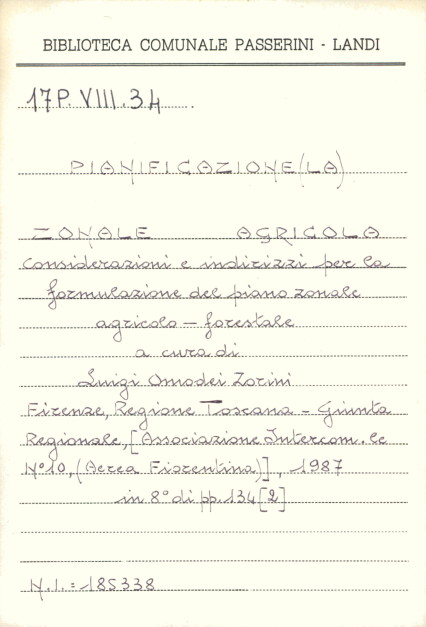 BIBLIOTECA COMUNALE PASSERINI - LANDI
17P. VIII.34
PIANIFICAZIONE (LA)
ZONALE AGRICOLA
Considerazioni e indirizzi per la
formulazione del piano zonale
agricolo - forestale
a cura di
Luigi Omodei Zorini
Firenze, Regione Toscana - Giunta
Regionale, [Associazione Intercom.le
N° 10, (Aerea Fiorentina)], 1987
in 8° di pp. 134 [2]
N.I. = 185338